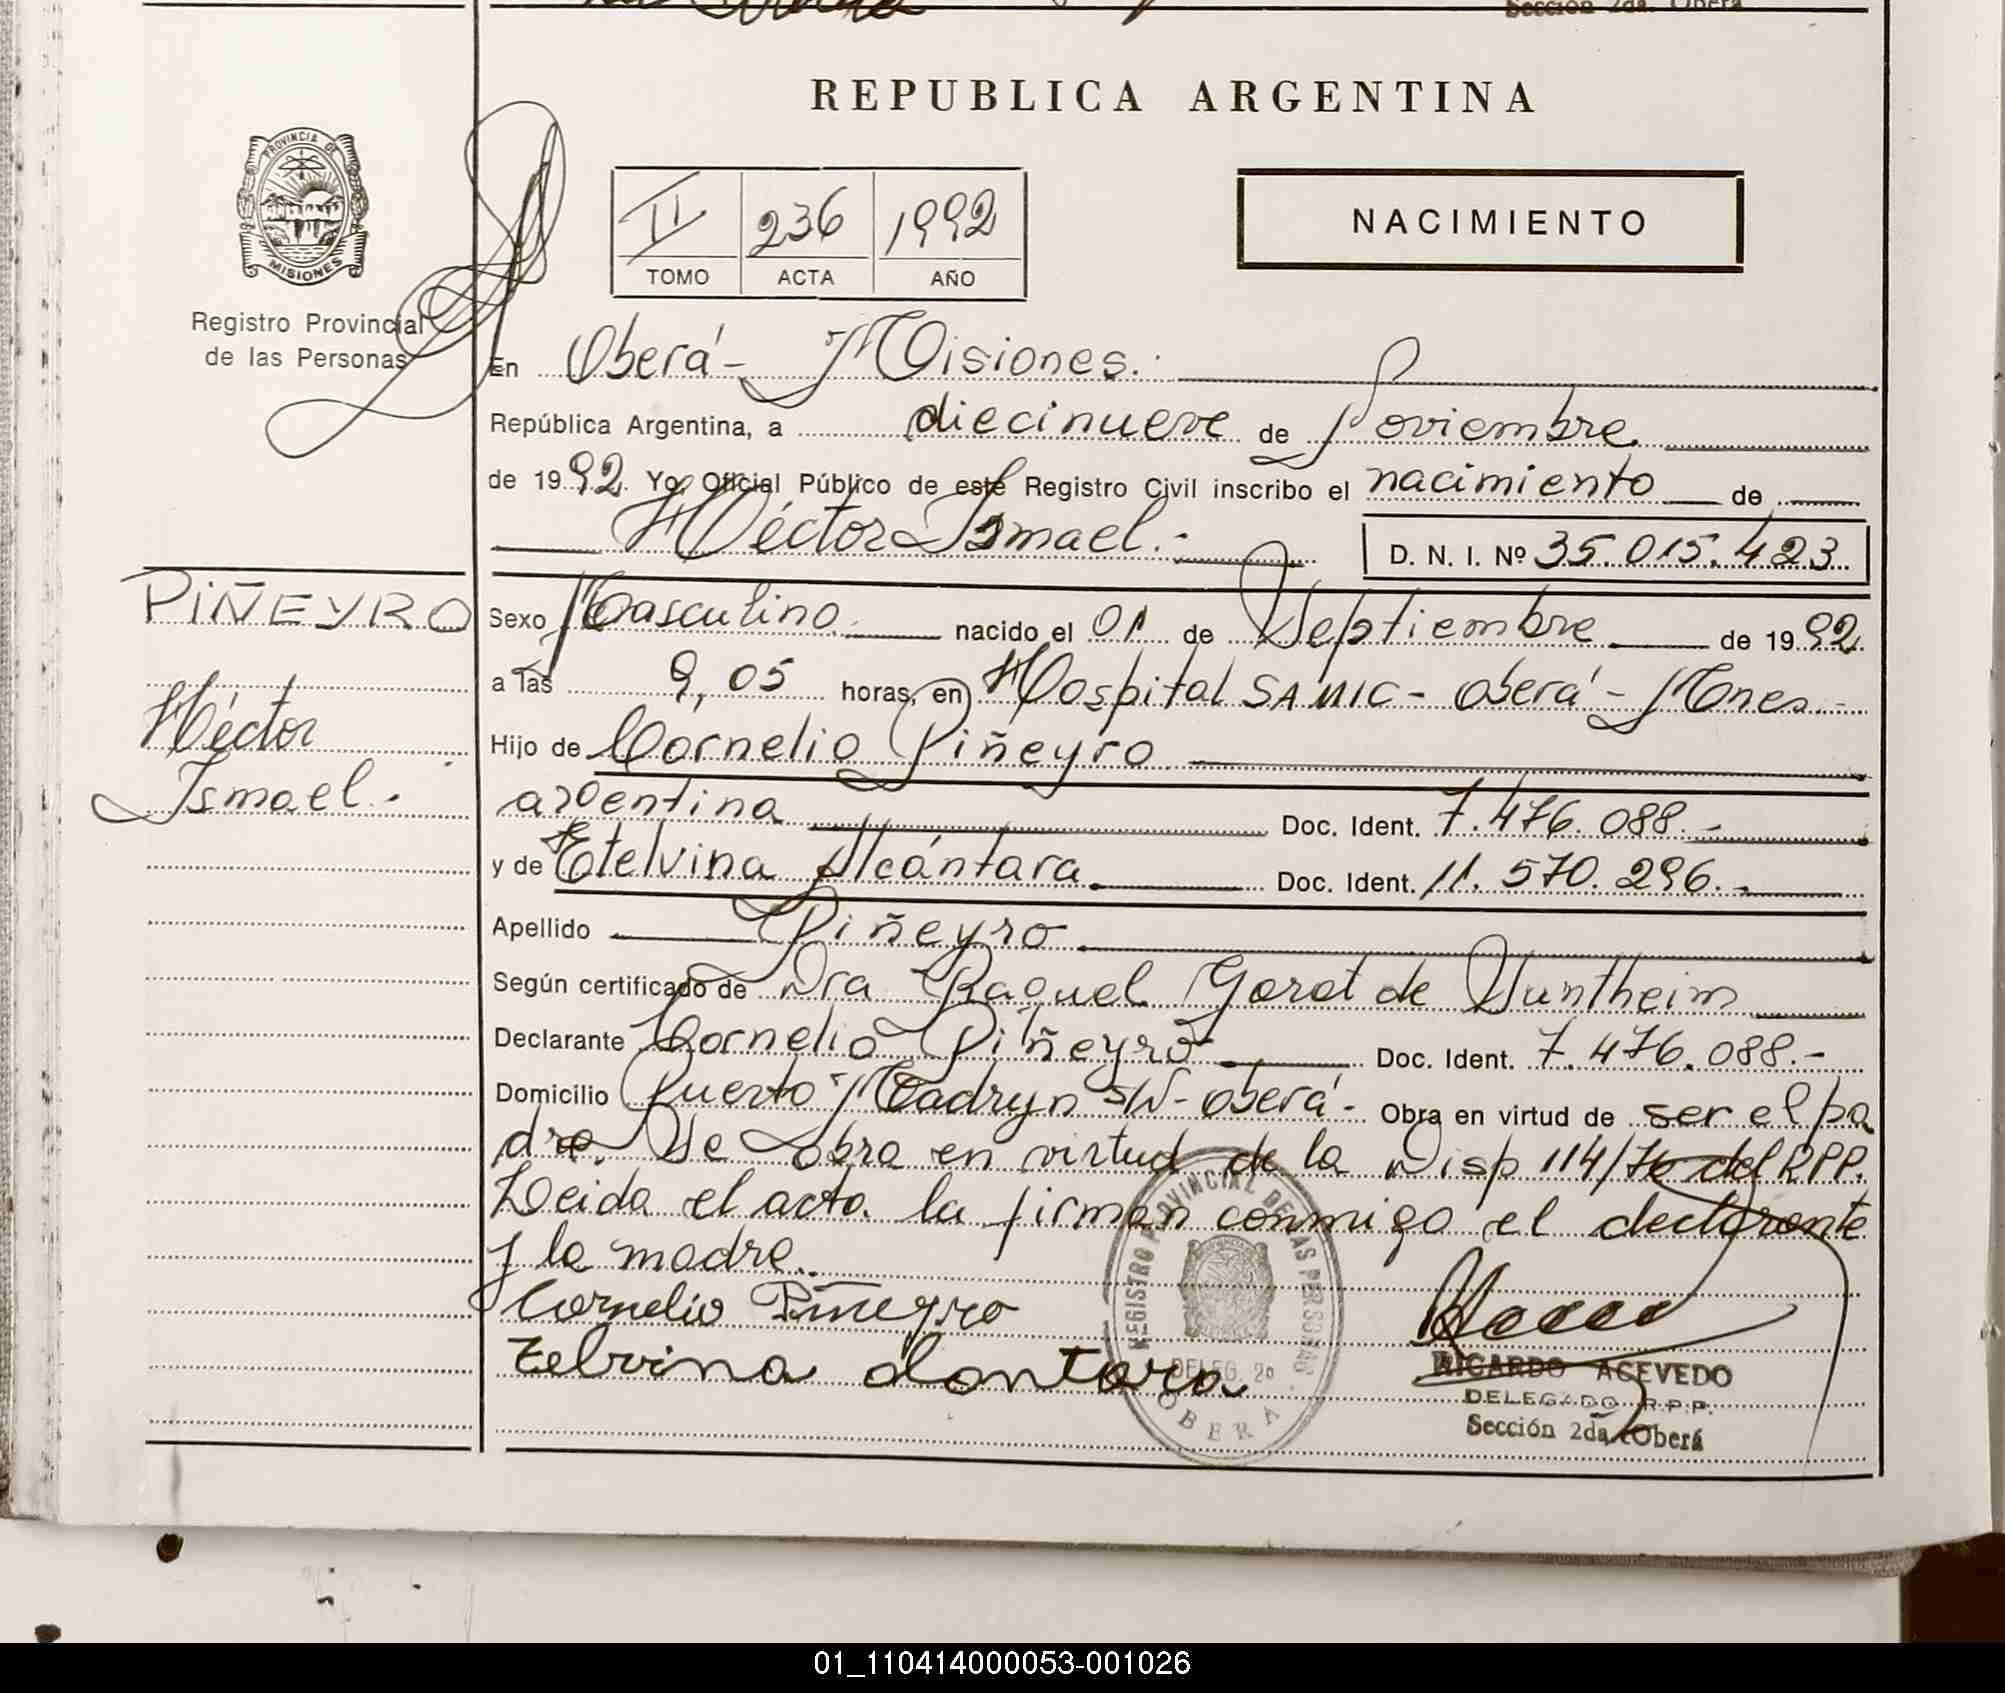 Sección 2da. Oberá
REPUBLICA ARGENTINA
PROVINCIA DE
MISIONES
Registro Provincial
de las Personas
II 236 1992
TOMO ACTA AÑO
NACIMIENTO
En Oberá - Misiones.
República Argentina, a diecinueve de Noviembre
de 1992 Yo, Oficial Público de este Registro Civil inscribo el nacimiento de
Héctor Ismael.-
D. N. I. Nº 35.015.423
PIÑEYRO
Héctor
Ismael.-
Sexo Masculino nacido el 01 de Septiembre de 1992
a las 9,05 horas, en Hospital SAMIC - Oberá - Mnes.-
Hijo de Cornelio Piñeyro
argentina Doc. Ident. 7.476.088.-
y de Etelvina Alcántara Doc. Ident. 11.570.296.-
Apellido Piñeyro
Según certificado de Dra Raquel de
Declarante Cornelio Piñeyro Doc. Ident. 7.476.088.-
Domicilio Puerto Madryn S/N - Oberá - Obra en virtud de ser el pa
dre. Se obra en virtud de la Disp 114/76 del RPP.
Leida el acta la firman conmigo el declarante
y la madre.
Cornelio Piñeyro
Telvina
REGISTRO PROVINCIAL DE LAS PERSONAS
DELEG. 2º
OBERA
RICARDO ACEVEDO
DELEGADO R.P.P.
Sección 2da. Oberá
01_110414000053-001026